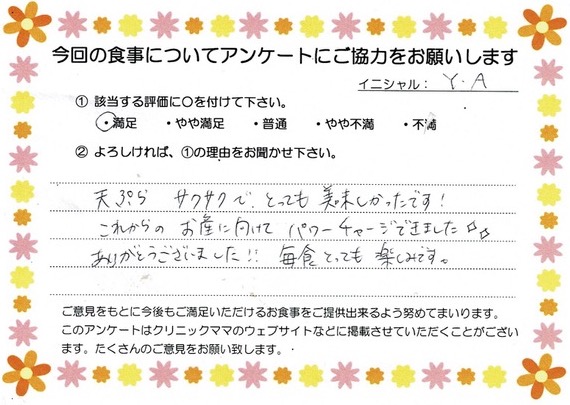 今回の食事についてアンケートにご協力をお願いします
イニシャル： Y.A
① 該当する評価に〇を付けて下さい。
・満足 ・やや満足 ・普通 ・やや不満 ・不満
② よろしければ、①の理由をお聞かせ下さい。
天ぷら サクサクで、とっても 美味しかったです!
これからの お産に向けて パワーチャージできました☆☆
ありがとうございました!! 毎食とっても 楽しみです。
ご意見をもとに今後もご満足いただけるお食事をご提供出来るよう努めてまいります。
このアンケートはクリニックママのウェブサイトなどに掲載させていただくことがござい
ます。たくさんのご意見をお願い致します。